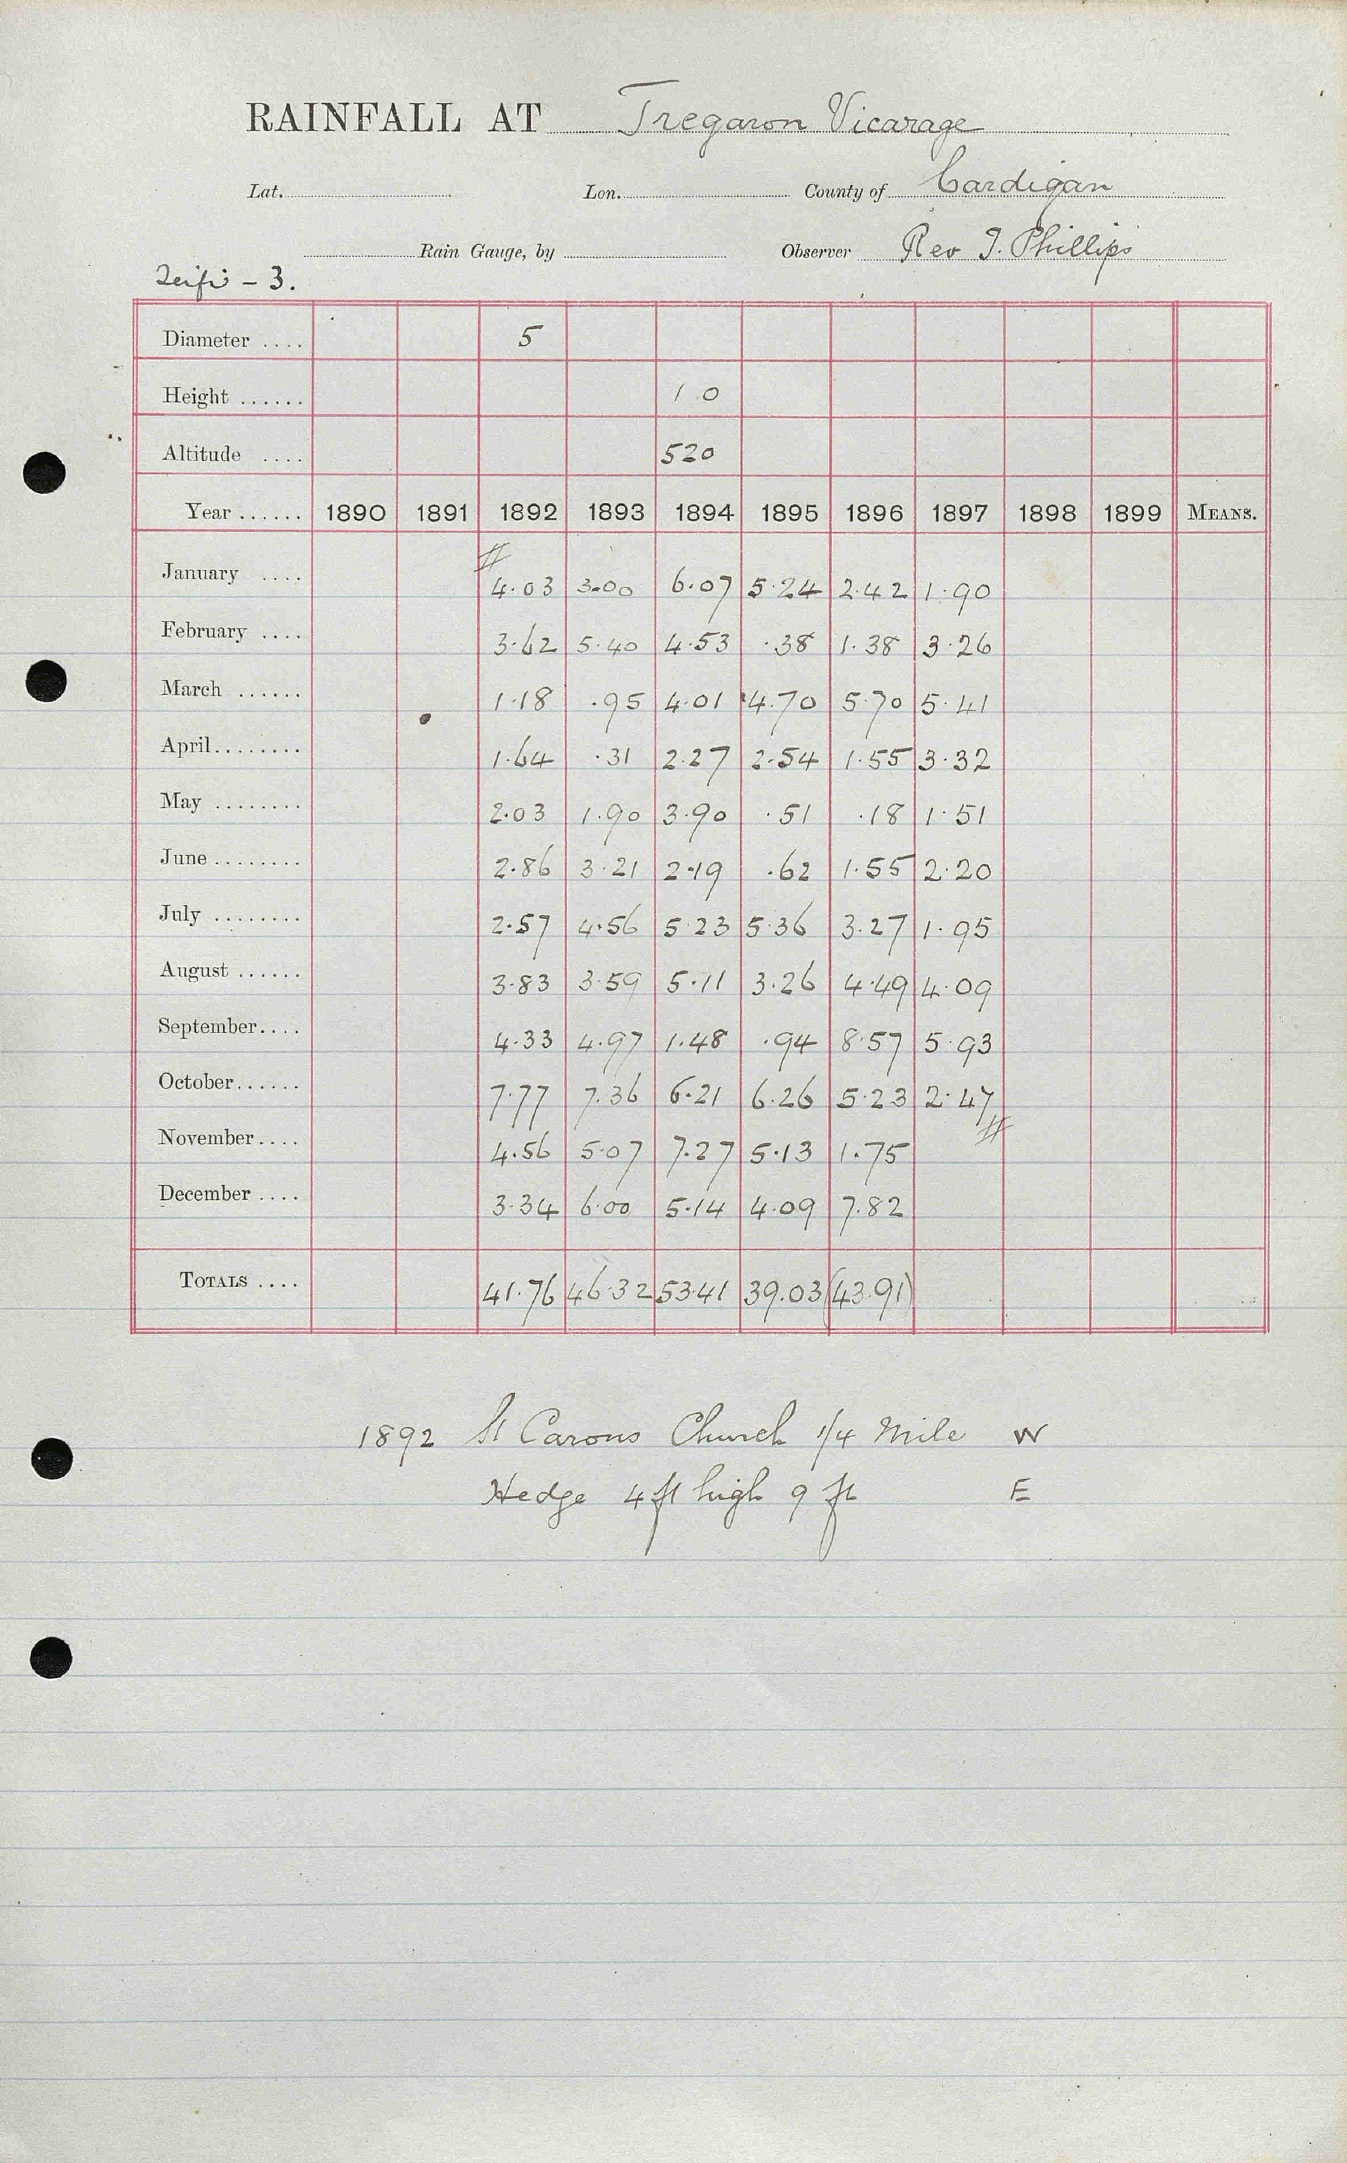 RAINFALL AT Tregaron Vicarage
Lat. Lon. County of Cardigan
Rain Gauge, by Observer Rev J. Phillips
Teifi - 3.
Diameter .... 5
Height ...... 1 0
Altitude .... 520
Year ...... 1890 1891 1892 1893 1894 1895 1896 1897 1898 1899 MEANS.
January .... 4.03 3.00 6.07 5.24 2.42 1.90
February .... 3.62 5.40 4.53 .38 1.38 3.26
March ...... 1.18 .95 4.01 4.70 5.70 5.41
April........ 1.64 .31 2.27 2.54 1.55 3.32
May ........ 2.03 1.90 3.90 .51 .18 1.51
June ........ 2.86 3.21 2.19 .62 1.55 2.20
July ........ 2.57 4.56 5.23 5.36 3.27 1.95
August ...... 3.83 3.59 5.11 3.26 4.49 4.09
September.... 4.33 4.97 1.48 .94 8.57 5.93
October...... 7.77 7.36 6.21 6.26 5.23 2.47
November.... 4.56 5.07 7.27 5.13 1.75
December .... 3.34 6.00 5.14 4.09 7.82
TOTALS .... 41.76 46.32 53.41 39.03 (43.91)
1892 St Carons Church 1/4 Mile W
Hedge 4 ft high 9 ft E